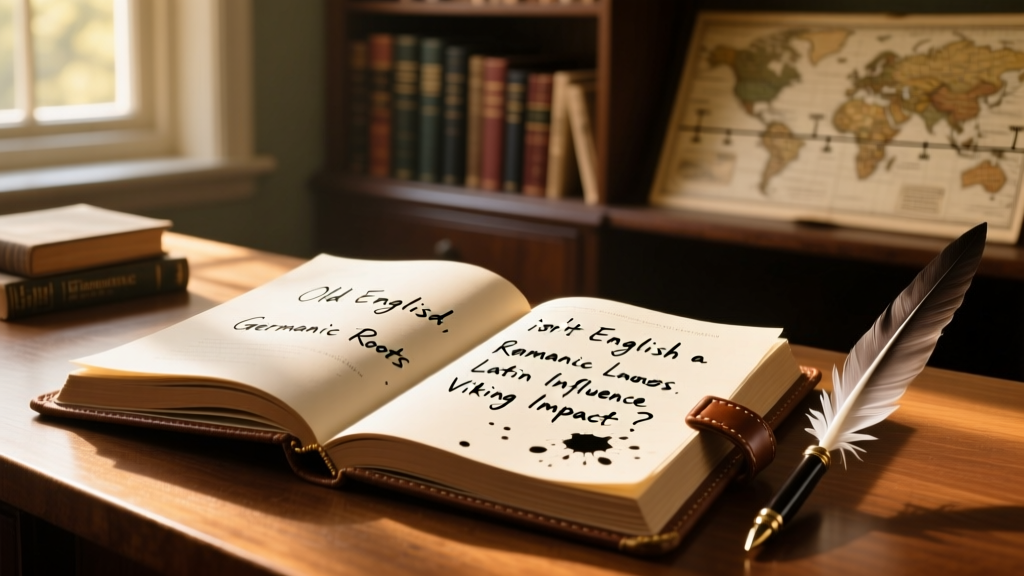 Old Englisd,
Germanic Roots.
isn't English a
Romanic
Latin Influence
Viking Impact?